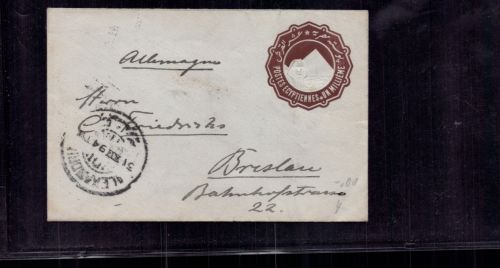 Allemagne
POSTES EGYPTIENNES UN MILLIEME
Herrn
Friedrichs
ALEXANDRIE
31 XII 94
Breslau
Bahnhofstrasse
22.